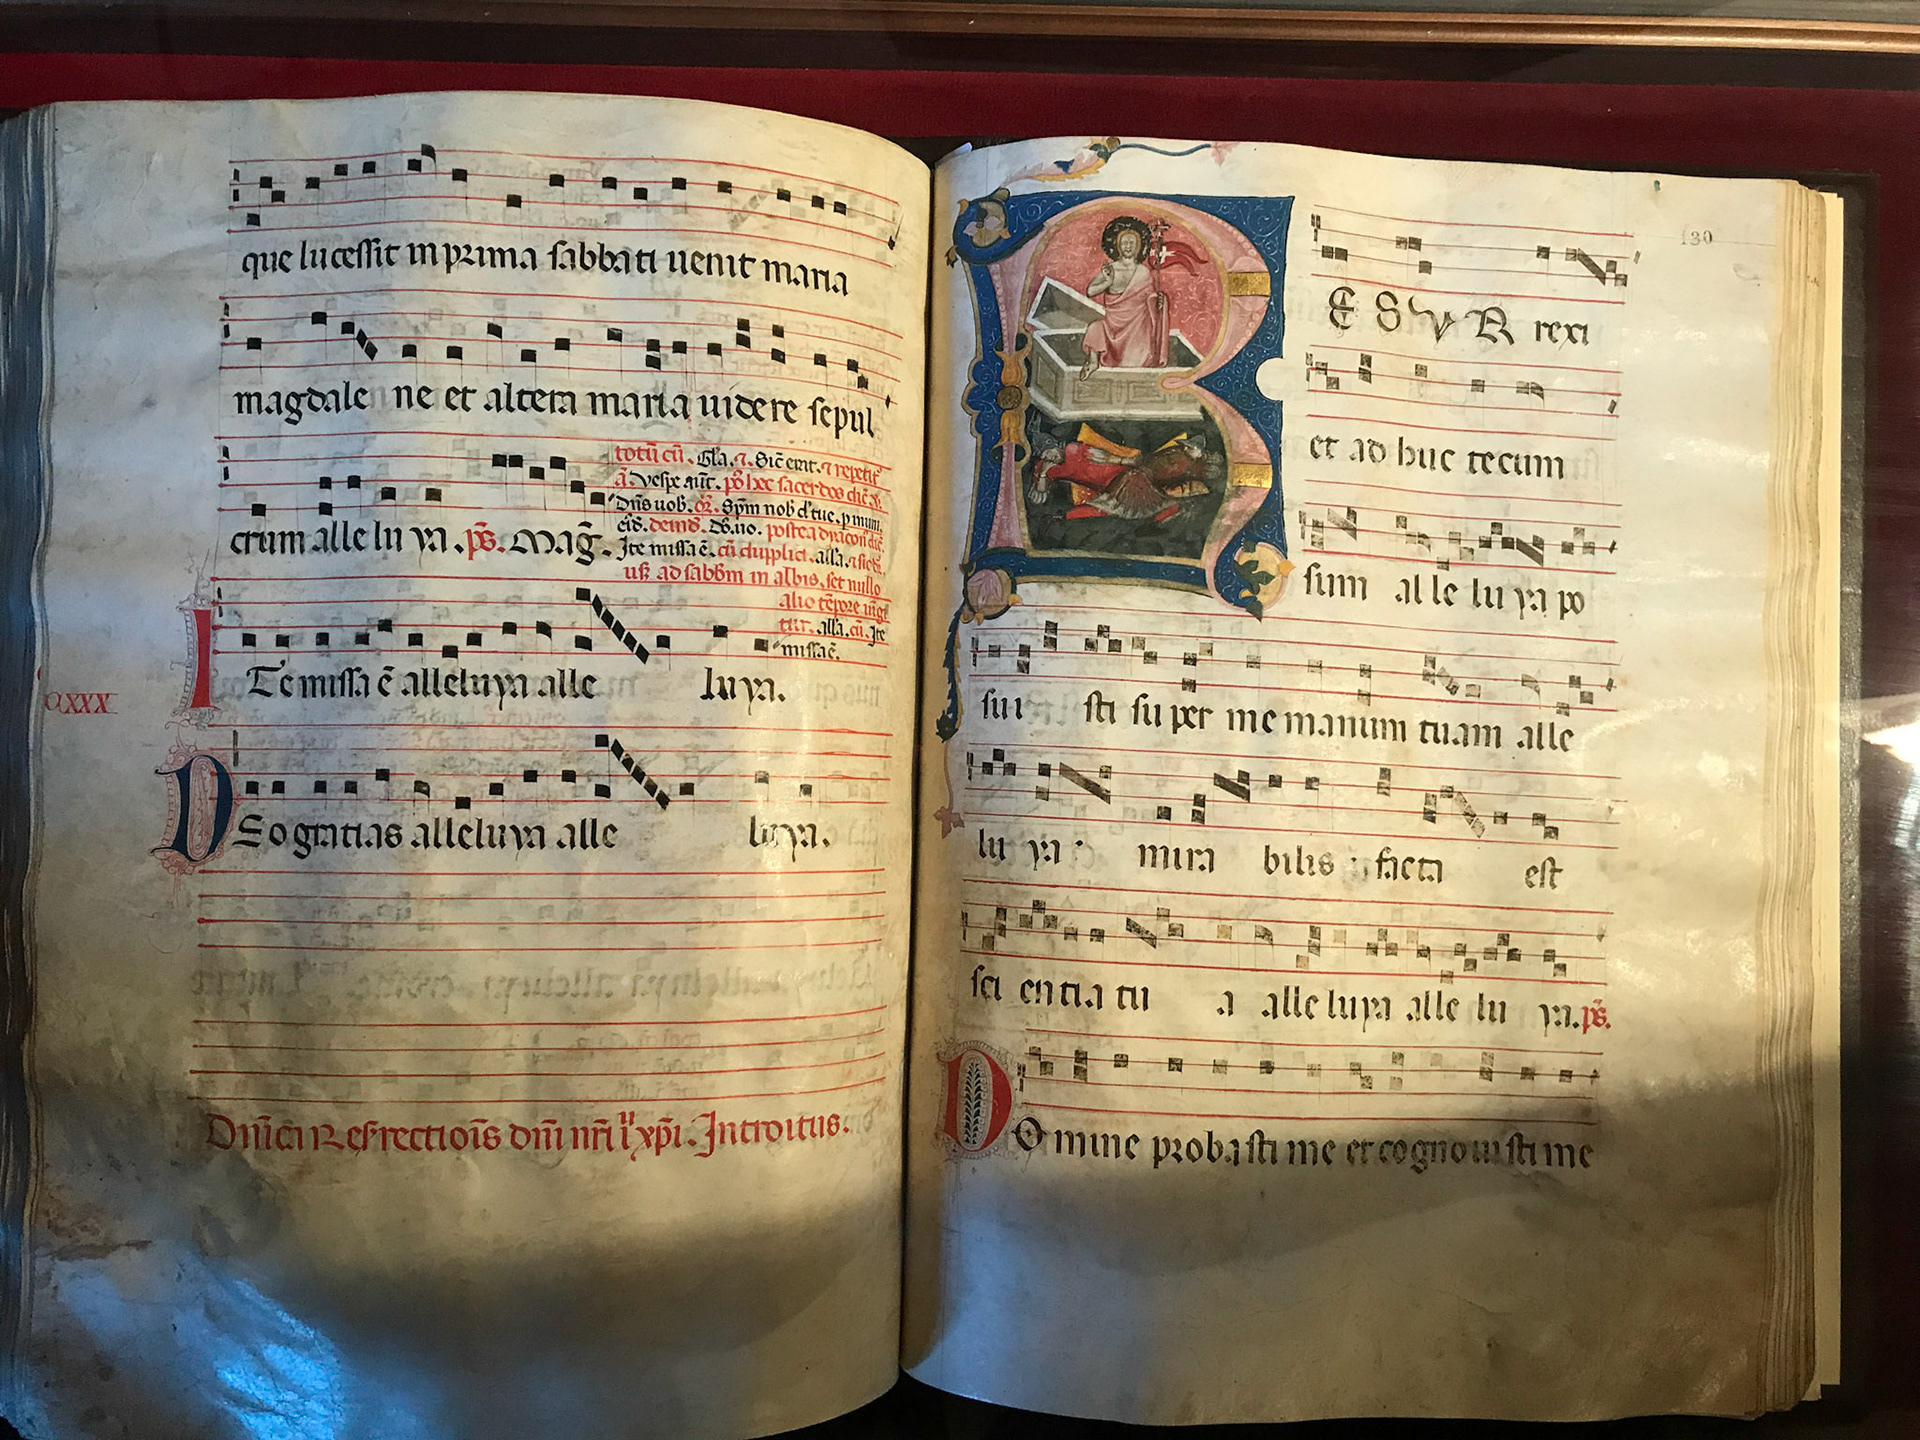 que lucessit in prima sabbati uenit maria
magdale ne et altera maria uidere sepul
totū cū. Gla. ⁊. Sic̄ erat. ⁊ repetit᷑
ā. Vesp̄e aūt. po᷑ hec sacerdos dic̄
Dn̄s uob. Sp̄m nob d᷑ tue. p mum.
eiō. deinō. Db. uo. postea dyacon dic̄
crum alle lu ya. ps̄. Mag̅.
Ite missa ē. cū duplici. alla. ⁊
usq ad sabb̄m in albis. set nullo
alio tēpore iūgi
tur. alla. cū. Ite
missa ē.
ITe missa ē alleluya alle luya.
CXXX
DEo gratias alleluya alle luya.
Dn̄ica Resrectiōis dn̄i nr̄i ih᷑ xp̄i. Introitus.
130
RESVR rexi
et ad huc tecum
sum al le lu ya po
sui sti su per me manum tuam alle
lu ya : mira bilis : facta est
sci entia tu a alle luya alle lu ya. ps̄.
DOmine probasti me et cognouisti me